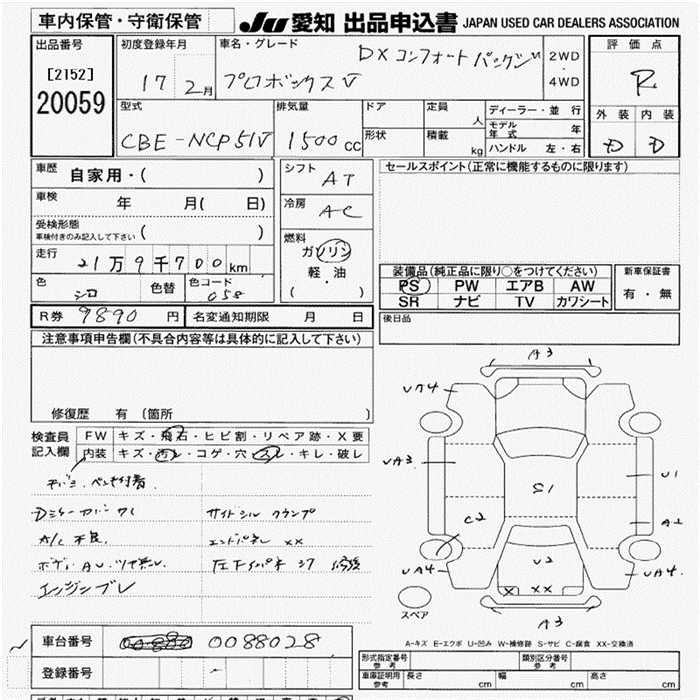 車内保管・守衛保管
JU 愛知 出品申込書 JAPAN USED CAR DEALERS ASSOCIATION
出品番号
[2152]
20059
初度登録年月
17 2月
車名・グレード
DX コンフォートパッケージ
プロボックスV
2WD
・
4WD
評価点
R
外装 内装
D D
型式
CBE-NCP51V
排気量
1500cc
ドア
形状
定員 人
積載 kg
ディーラー・並行
モデル年式 年
ハンドル 左・右
車歴
自家用・( )
車検
年 月( 日)
受検形態
車検付きのみ記入して下さい
走行
21万9千700km
色
シロ
色替
色コード
058
シフト
AT
冷房
AC
燃料
ガソリン
軽・油
( )
セールスポイント(正常に機能するものに限ります)
装備品(純正品に限り○をつけてください)
PS PW エアB AW
SR ナビ TV カワシート
新車保証書
有・無
R券 9890円
名変通知期限 月 日
後日品
注意事項申告欄(不具合内容等は具体的に記入して下さい)
修復歴 有 (箇所 )
検査員記入欄
FW キズ・飛石・ヒビ割・リペア跡・X要
内装 キズ・汚レ・コゲ・穴・スレ・キレ・破レ
ペンキ付着
Dミラーカバーワレ
サイドシル クランプ
A/C 不良
エンドパネル XX
エンジンブレ
車台番号
0088028
登録番号
A3
UA4
UA3
U1
S1
A2
C2
U2
UA4
UA4
X XX
A3
スペア
A-キズ E-エクボ U-凹み W-補修跡 S-サビ C-腐食 XX-交換済
形式指定番号
参考
類別区分番号
参考
車庫証明用
参考
長さ cm
幅 cm
高さ cm